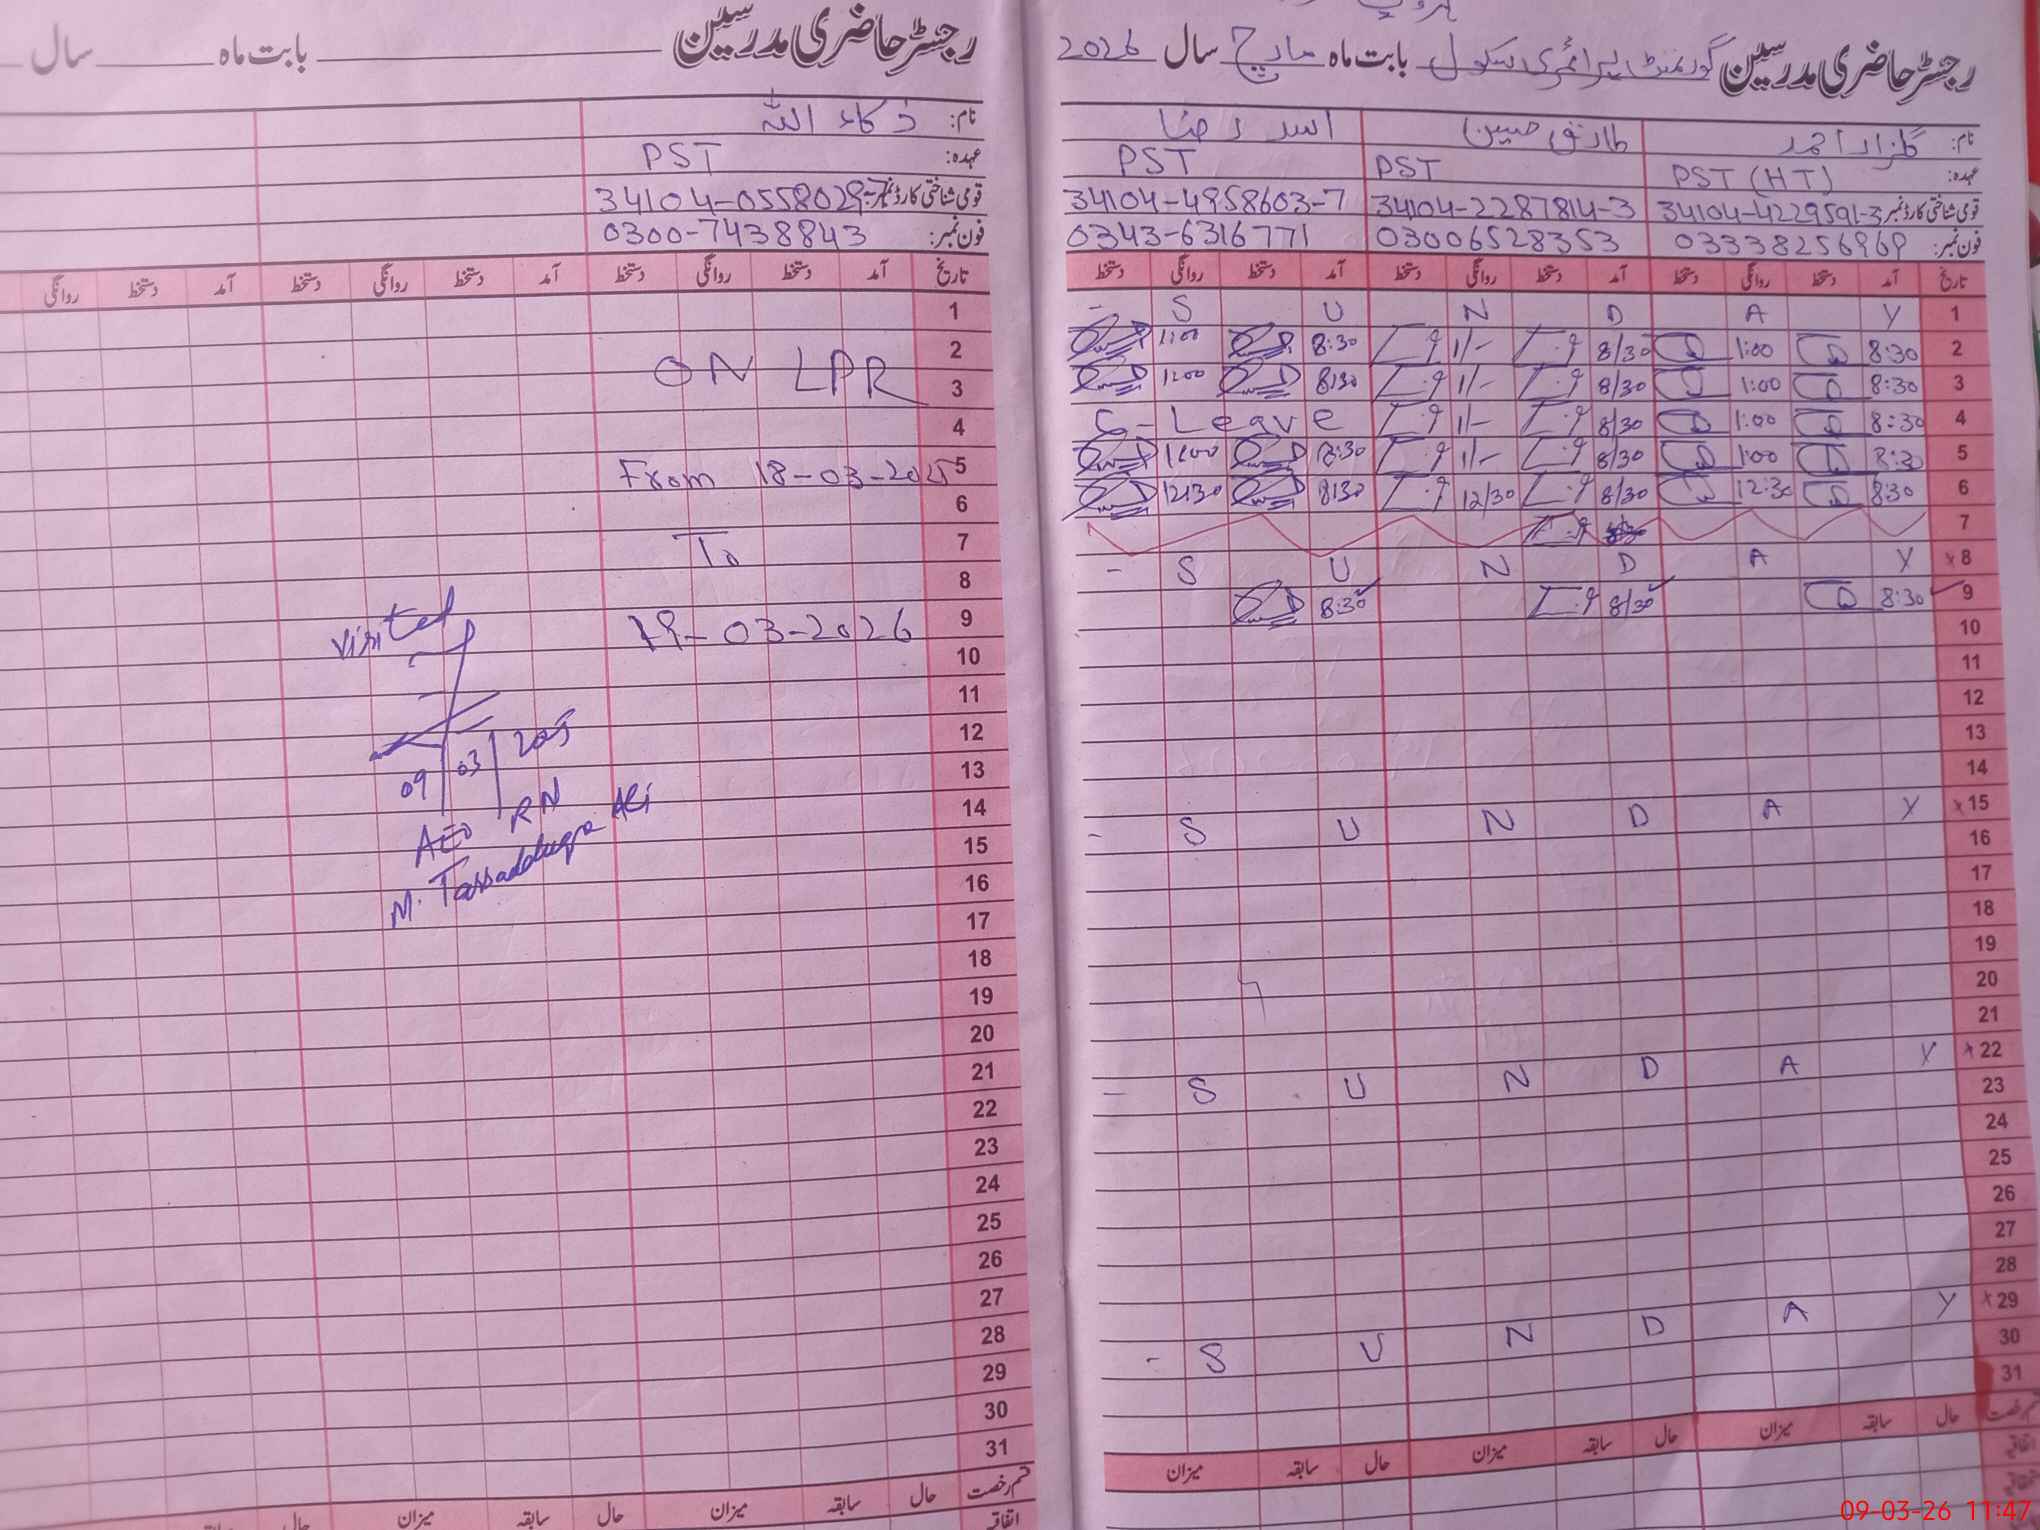 رجسٹر حاضری مدرسین گورنمنٹ پرائمری سکول بابت ماہ مارچ سال 2026
نام: گلزار احمد طارق حسین اسد رضا
عہدہ: PST (HT) PST PST
قومی شناختی کارڈ نمبر 34104-4229591-3 34104-2287814-3 34104-4958603-7
فون نمبر: 03338256969 03006528353 0343-6316771
تاریخ آمد دستخط روانگی دستخط آمد دستخط روانگی دستخط آمد دستخط روانگی دستخط
1 - S U N D A Y
2 8:30 1:00 8/30 1/- 8:30 1:00
3 8:30 1:00 8/30 1/- 8:30 1:00
4 8:30 1:00 8/30 1/- C-Leave
5 8:30 1:00 8/30 1/- 8:30 1:00
6 8:30 12:30 8/30 12/30 8:30 12:30
7
×8 - S U N D A Y
9 8:30 8/30 8:30
10
11
12
13
14
×15 - S U N D A Y
16
17
18
19
20
21
×22 - S U N D A Y
23
24
25
26
27
28
×29 - S U N D A Y
30
31
قسم رخصت حال سابقہ میزان حال سابقہ میزان حال سابقہ میزان
اتفاقیہ
رجسٹر حاضری مدرسین بابت ماہ سال
نام: ذکاء اللہ
عہدہ: PST
قومی شناختی کارڈ نمبر: 34104-0558029-7
فون نمبر: 0300-7438843
تاریخ آمد دستخط روانگی دستخط آمد دستخط روانگی دستخط آمد دستخط روانگی
1
2
ON LPR
3
4
From 18-03-2025
5
6
To
7
8
19-03-2026
9
10
11
12
13
14
15
16
17
18
19
20
21
22
23
24
25
26
27
28
29
30
31
visited
09/03/
AEO RN
M. Tassaduqe Ali
قسم رخصت حال سابقہ میزان حال سابقہ میزان حال
اتفاقیہ
09-03-26 11:47